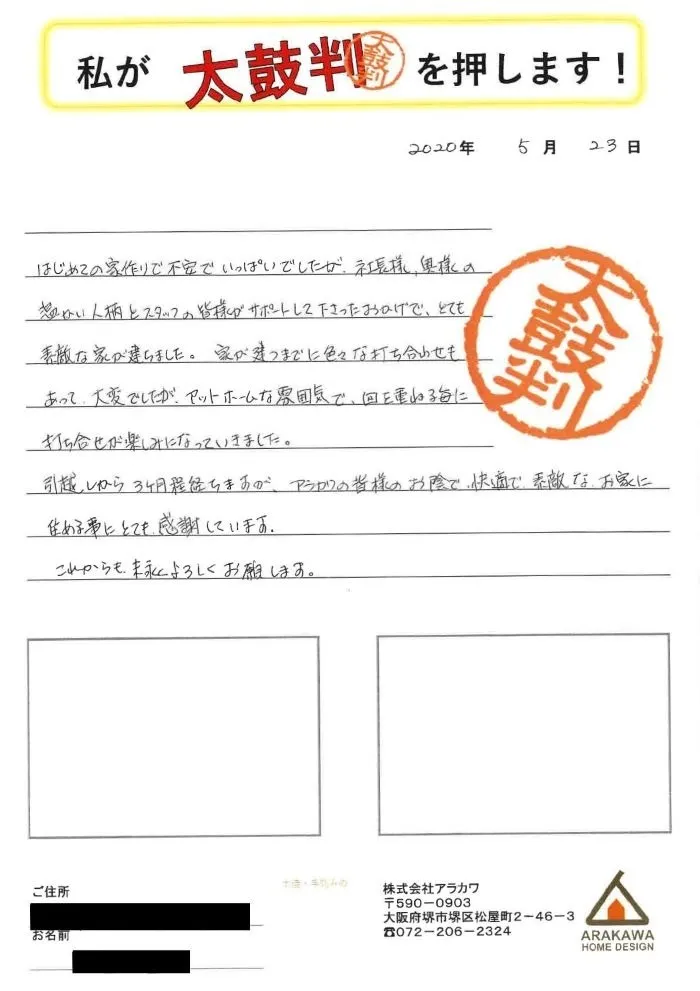 私が 太鼓判 太鼓判 を押します!
2020年 5月 23日
はじめての家作りで不安でいっぱいでしたが、社長様、奥様の
温かい人柄とスタッフの皆様がサポートして下さったおかげで、とても
素敵な家が建ちました。 家が建つまでに色々な打ち合わせも
あって、大変でしたが、アットホームな雰囲気で、回を重ねる毎に
打ち合せが楽しみになっていきました。
太鼓判
引越しから 3ヶ月程経ちますが、アラカワの皆様のお陰で、快適で、素敵な、お家に
住める事にとても感謝しています。
これからも、末永くよろしくお願します。
ご住所
お名前
株式会社アラカワ
〒590-0903
大阪府堺市堺区松屋町2-46-3
☎072-206-2324
ARAKAWA
HOME DESIGN